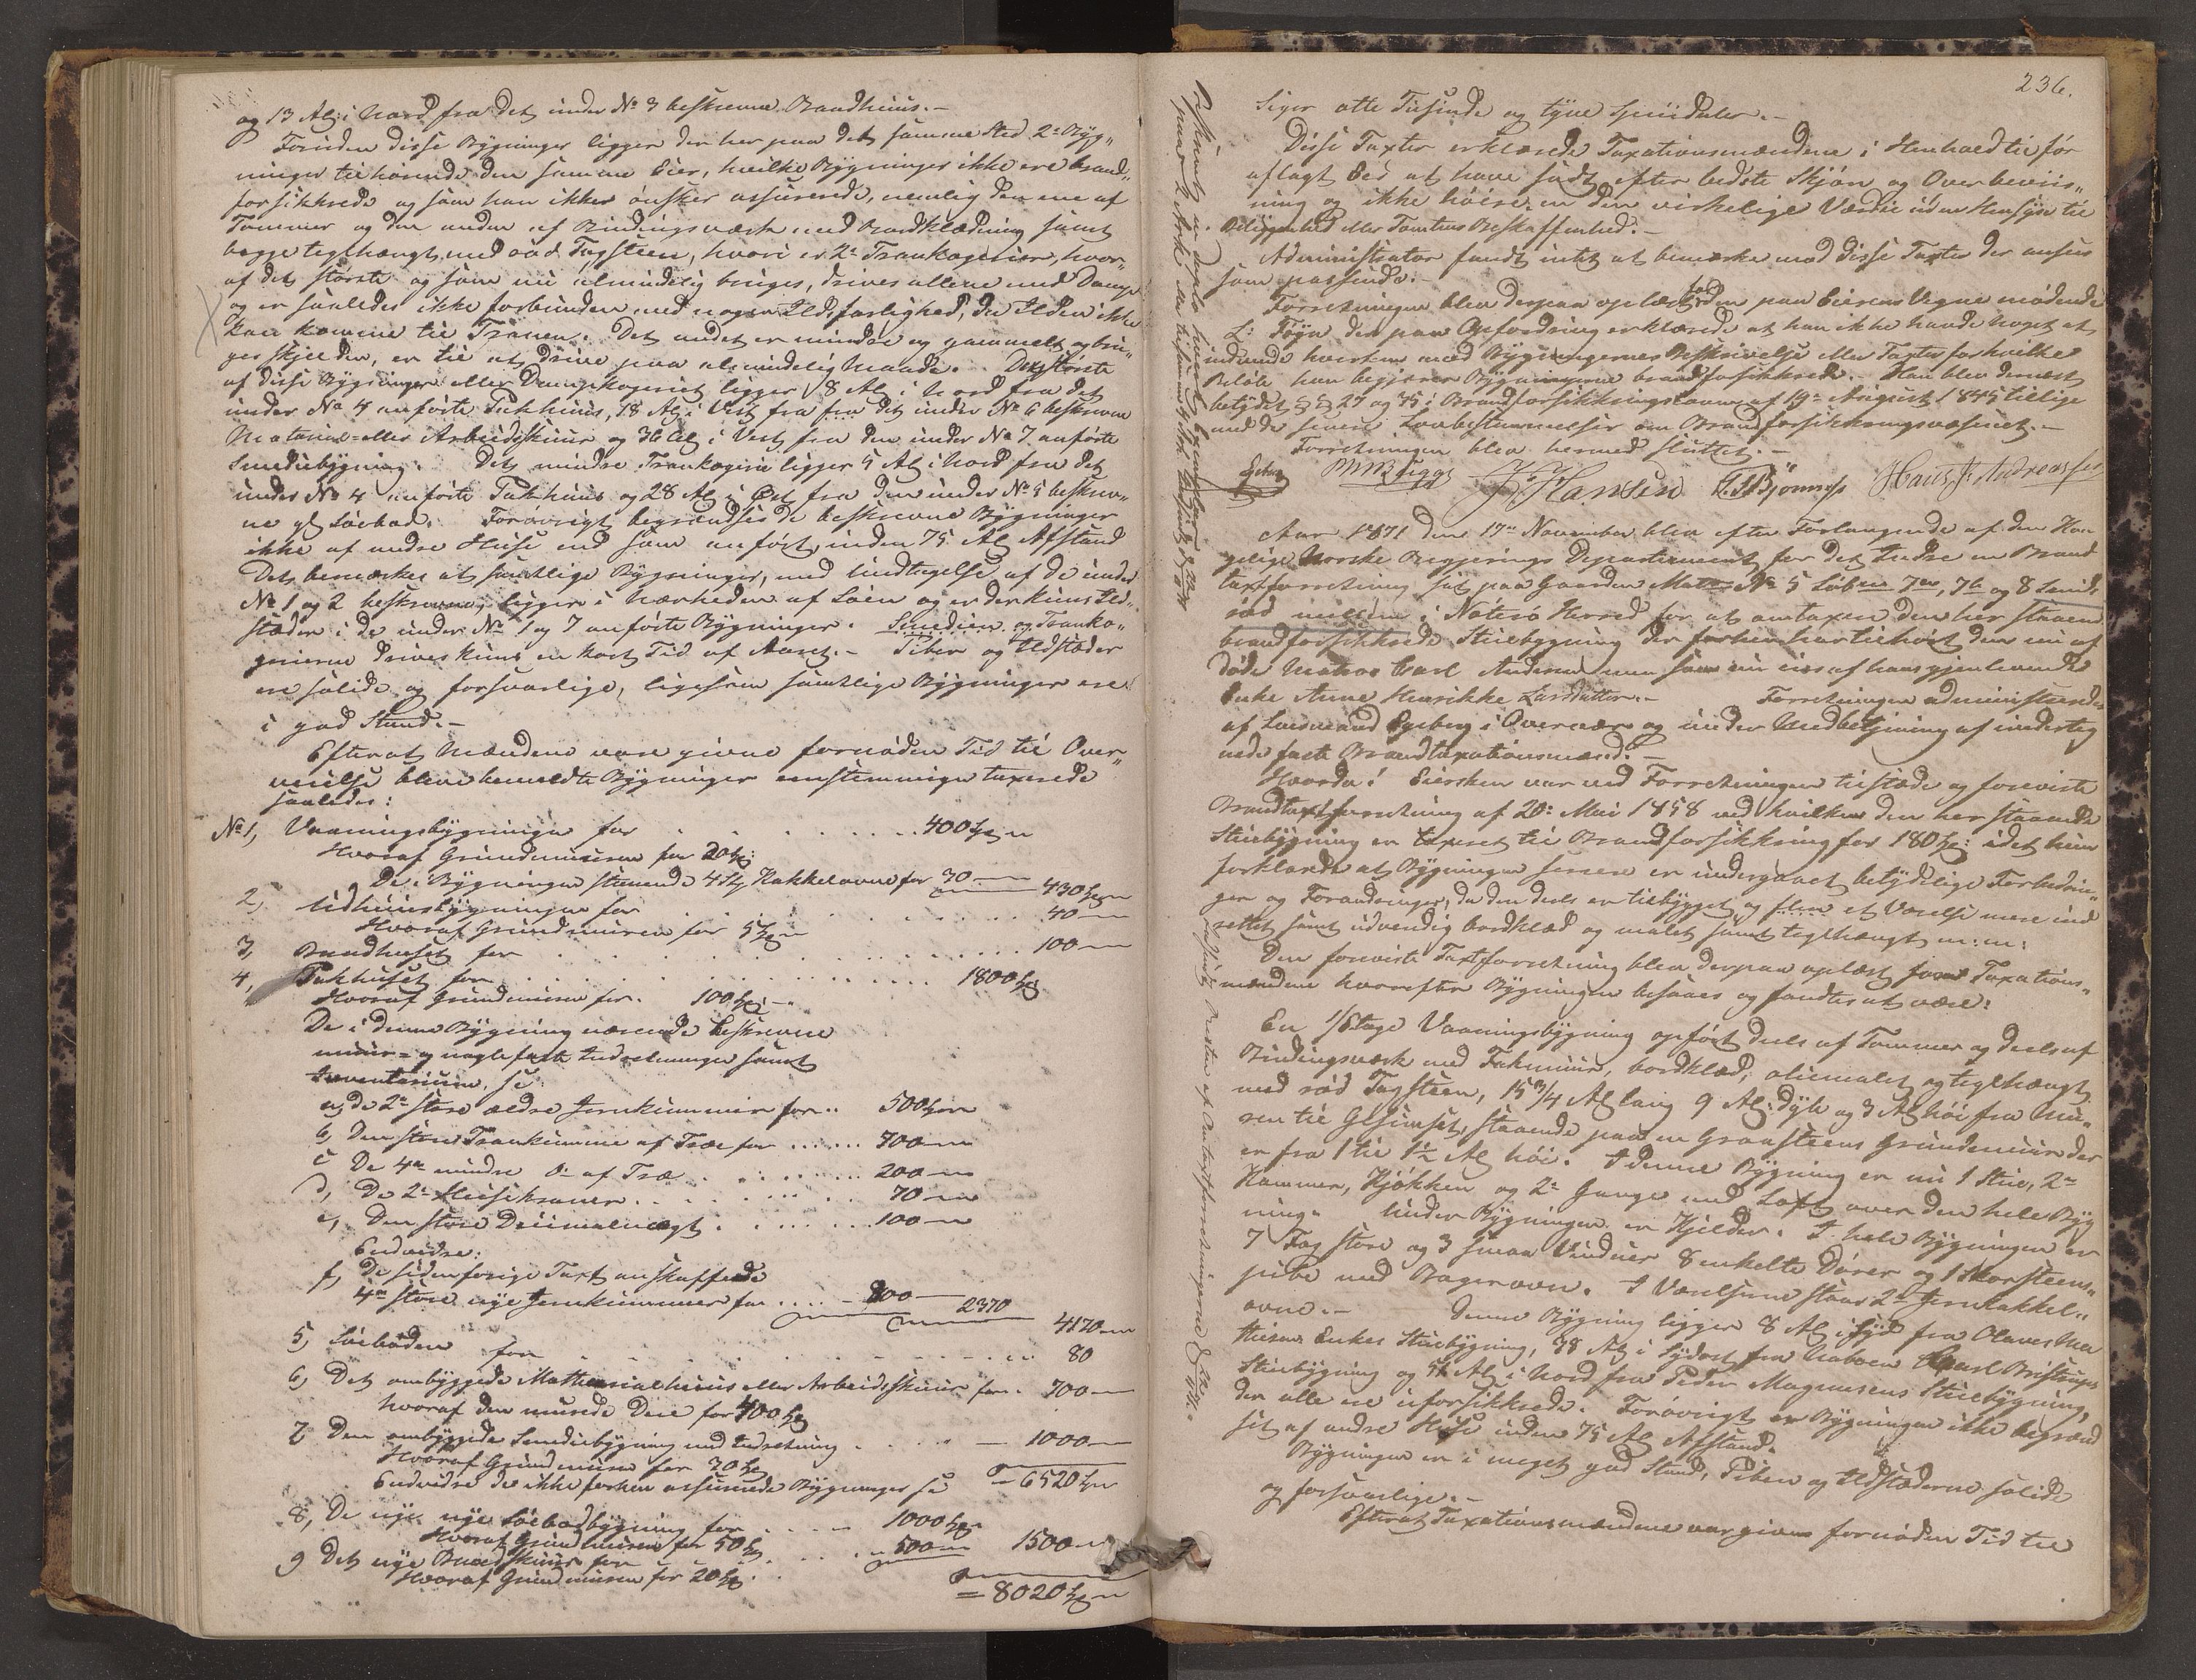 og 13 Al: i Nord fra det under No 3 beskrevne Baadhuus.-
Foruden disse Bygninger ligger der her paa det samme Sted 2de Byg„
ninger tilhørende den samme Eier, hvilke Bygninger ikke ere brand„
forsikkrede og som han ikke ønsker assurerede, nemlig den ene af
Tømmer og den anden af Bindingsværk med Bordklædning samt
begge teglhængt med rød Tagsteen, hvori er 2de Trankogerier, hvor„
af det største og som nu almindelig bruges, drives allene med Damp
og er saaledes ikke forbunden med nogen Ildsfarlighed, da Ilden ikke
kan komme til Tranen. Det andet er mindre og gammelt og bru„
ges sjelden, er til at drive paa almindelig Maade. Det største
af disse Bygninger eller Dampkogeriet ligger 8 Al i Nord fra det
under No 4 anførte Pakhuus, 18 Al i Vest fra fra det under No 6 beskrevne
Material- eller Arbeidsskuur og 36 Al i Vest fra den under No 7 anførte
Smediebygning. Det mindre Trankogeri ligger 5 Al i Nord fra det
under No 4 anførte Pakhuus og 28 Al i Øst fra den under No 5 beskrev„
ne gl Søebod. Forøvrigt begrændses de beskrevne Bygninger
ikke af andre Huse end som anført inden 75 Al Afstand
Det bemærkes at samtlige Bygninger, med Undtagelse af de under
No 1 og 2 beskrevne, ligger i Nærheden af Søen og er der kuns Ild„
steder i de under No 1 og 7 anførte Bygninger. Smedien og Tranko„
gerierne drives kuns en kort Tid af Aaret.- Piber og Ildsteder
ere solide og forsvarlige, ligesom samtlige Bygninger ere
i god Stand.-
Efterat Mændene vare givne fornøden Tid til Over„
veielse bleve bemeldte Bygninger eenstemmigen taxerede
saaledes:
No 1, Vaaningsbygningen for . . . . . . 400
Hvoraf Grundmuren for 20
De i Bygningen staaende 4 St Kakkelovne for 30 430
2, Udhuusbygningen for . . . . . . 40
Hvoraf Grundmuren for 5
3, Baadhuset for . . . . . . 100
4, Pakhuset for . . . . . . 1800
Hvoraf Grundmuren for 100
De i denne Bygning værende beskrevne
muur- og naglefaste Indretninger samt
Inventarium, se
a, de 2de store ældre Jernkummer for . . 500
b, Den store Trankumme af Træ for . . . . 700
c De 4re mindre do af Træ . . . . . 200
d, De 2de Huuskraner . . . . . . 70
e, Den store Decimalvægt . . . . . . 100
Endvidre:
f, De siden forrige Taxt anskaffede
4re store nye Jernkummer for . . . . 800 2370
4170
5, Søeboden for . . . . . . 80
6, Det ombyggede Materialhuus eller Arbeidsskuur for. 700
hvoraf den murede Deel for 400
7 Den ombyggede Smediebygning med Indretning . . . 1000
Hvoraf Grundmuren for 30
Endvidre de ikke forhen assurerede Bygninger se = 6520
8, De nye nye Søebodbygning for . . . . 1000
Hvoraf Grundmuren for 50
9 Det nye Baadskuur for . . . . 500 1500
Hvoraf Grundmuren for 20
= 8020
236.
siger otte Tusinde og tyve Speciedaler.-
Disse Taxter erklærede Taxationsmændene i Henhold til før
aflagt Eed at have sadt efter bedste Skjøn og Overbeviis„
ning og ikke høiere en den virkelige Værdie uden Hensyn til
Beliggenhed eller Tomtens Beskaffenhed.-
Administrator fandt intet at bemærke mod disse Taxter der ansees
som passende.-
Forretningen blev derpaa oplæst for den paa Eierens Vegne mødende
L: Føyn der paa Opfordring erklærede at han ikke havde noget at
indvende hverken mod Bygningernes Beskrivelse eller Taxter for hvilke
Beløb han begjærer Bygningerne brandforsikkrede. Han blev dernæst
betydet §§ 27 og 35 i Brandforsikkringsloven af 19de August 1845 tillige
med de senere Lovbestemmelser om Brandforsikkringsvæsenet.-
Forretningen blev hermed sluttet.-
J. Hansen Hans J. Andreassen
Aar 1871 den 17de November blev efter Forlangende af den Kon„
gelige Norske Regjerings Departement for det Indre en Brand„
taxtforretning sat paa Gaarden Mat: No 5 Løbno 7a, 7b og 8
i Noterø Herred for at omtaxere den her staaende
brandforsikkrede Stuebygning der forhen har tilhørt den nu af„
døde Matros Carl Andersen men som nu eies af hans gjenlevende
Enke Anne Henrikke Larsdatter.- Forretningen administreredes
af Lensmand i og under Medbetjening af underteg„
nede faste Brandtaxationsmænd.-
Hvorda! Eiersken var ved Forretningen tilstede og foreviste
Brandtaxtforretning af 20de Mai 1858 ved hvilken den her staaende
Stuebygning er taxeret til Brandforsikkring for 180 idet hun
forklarede at Bygningen senere er undergaaet betydelige Forbedrin„
ger og Forandringer, da den deels er tilbygget og flere et Værelse mere ind„
rettet samt udvendig bordklæd og malet samt teglhængt m: m:
Den foreviste Taxtforretning blev derpaa oplæst for Taxations„
mændene hvorefter Bygningen besaaes og fandtes at være:
En 1 Etage Vaaningsbygning opført deels af Tømmer og deels af
Bindingsværk med Fakmuur, bordklæd, oliemalet og teglhængt
med rød Tagsteen, 15 3/4 Al lang 9 Al: dyb og 3 Al høi fra Mu„
ren til Gesimset, staaende paa en Graasteens Grundmuur der
er fra 1 til 1½ Al høi. I denne Bygning er nu 1 Stue, 2de
Kammer, Kjøkken og 2de Gange med Loft over den hele Byg„
ning. Under Bygningen er Kjelder. I hele Bygningen er
7 Fag store og 3 smaa Vinduer 8 enkelte Dører og 1 Skorsteens„
pibe med Bagerovn. I Værelserne staar 2de Jernkakkel„
ovne.- Denne Bygning ligger 8 Al i Syd fra Olaves Ma„
thisens Enkes Stuebygning, 38 Al i Sydost fra Naboen Carl
Stuebygning og Al i Nord fra Peder Magnusens Stuebygning,
der alle ere uforsikkrede. Forøvrigt er Bygningen ikke begrænd„
set af andre Huse inden 75 Al Afstand.
Bygningen er i meget god Stand, Piben og Ildstederne solide
og forsvarlige.-
Efterat Taxationsmændene var given fornøden Tid til